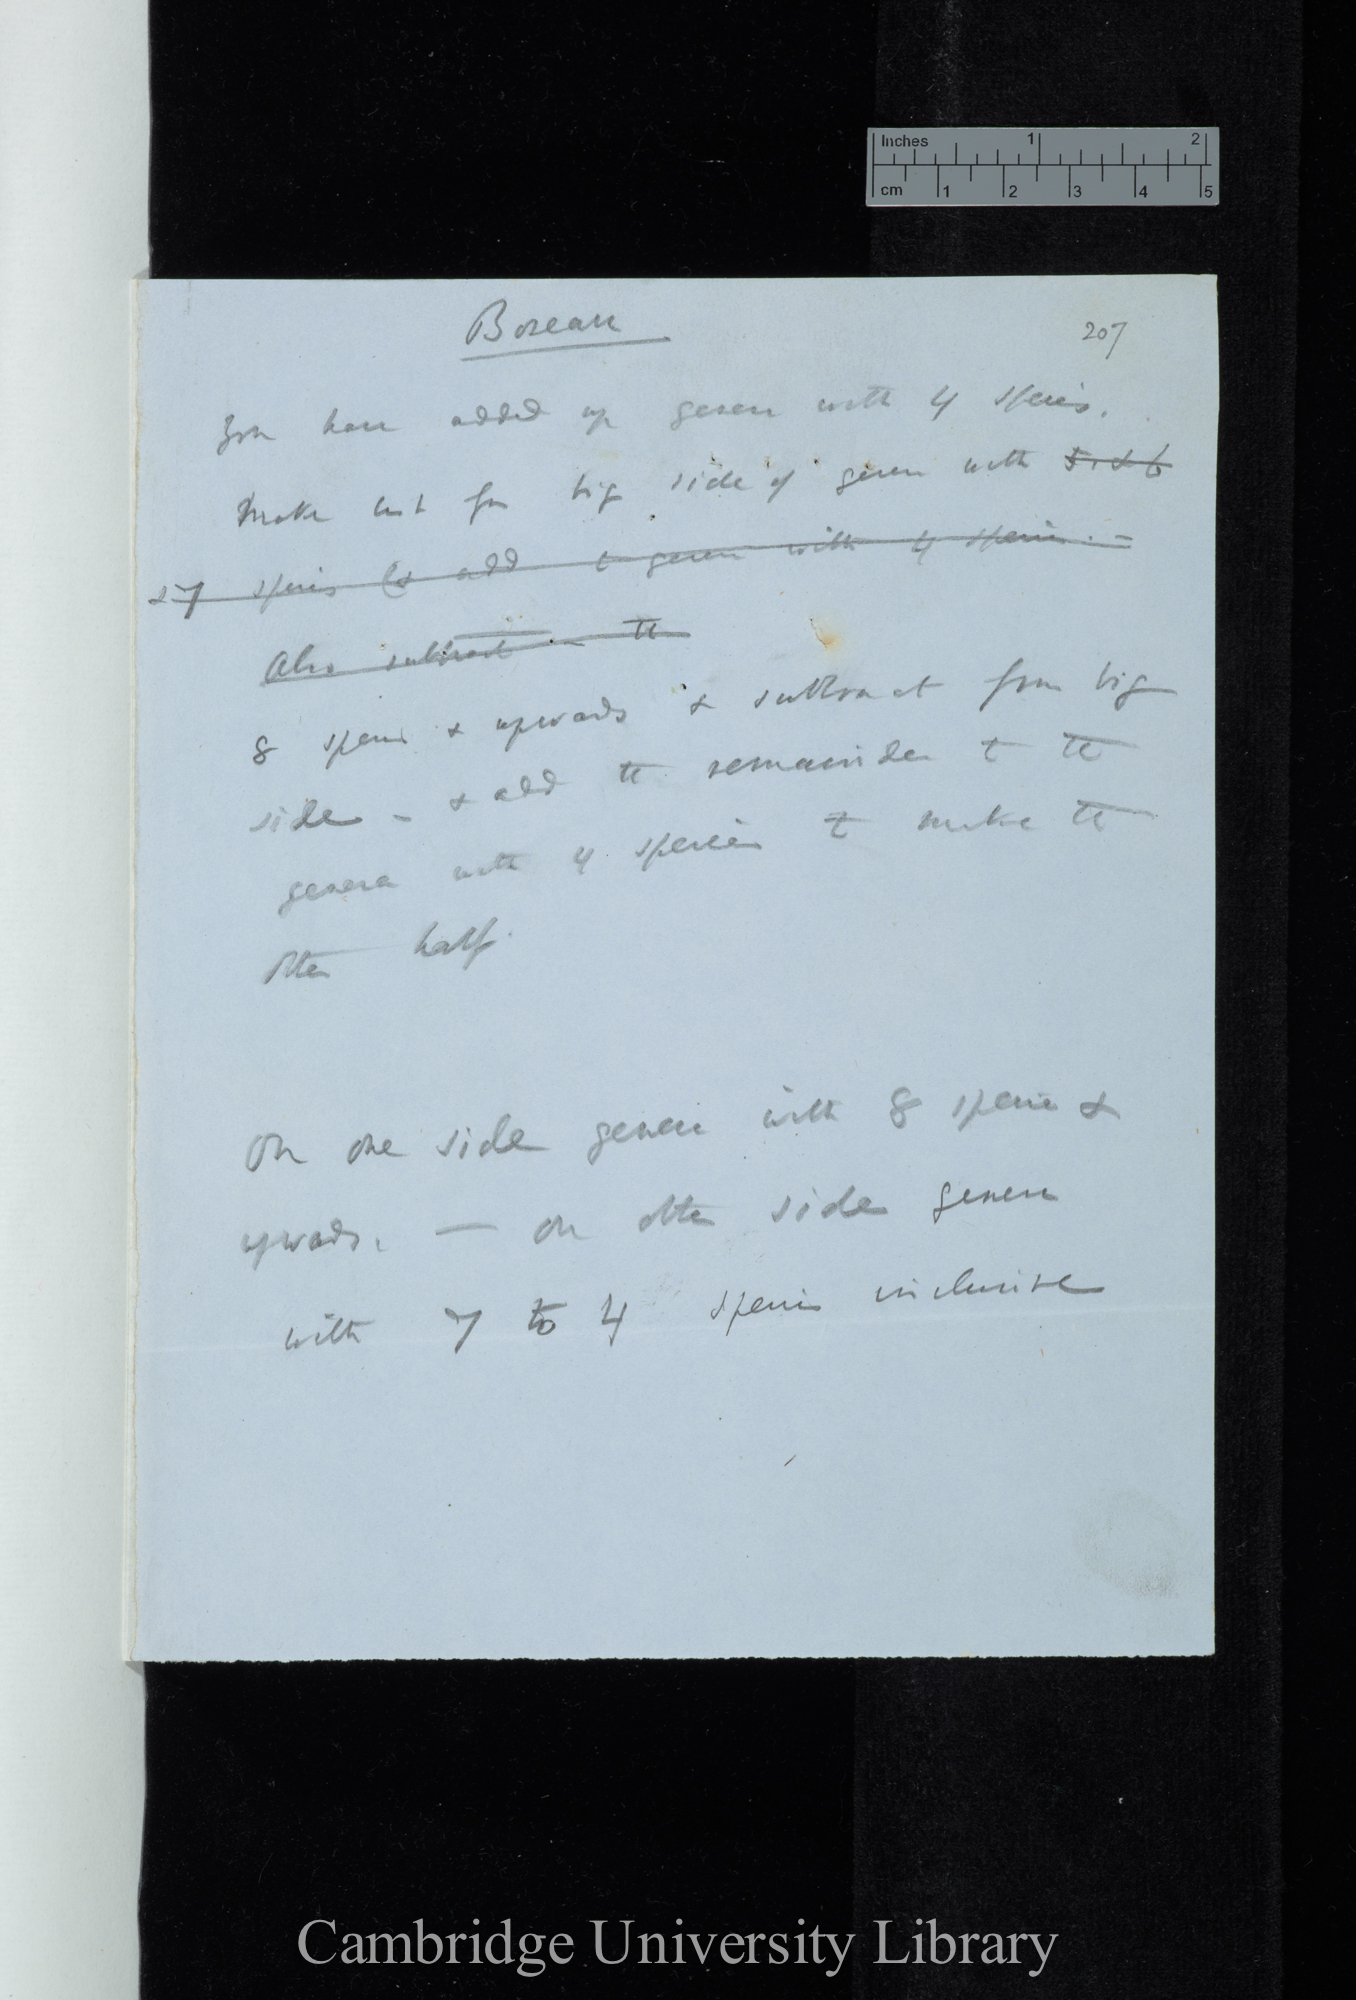 Inches 1 2
cm 1 2 3 4 5
Boreau
207
You have added up genera with 4 species.
Make list for big side of genera with 5, & 6
& 7 species (& add to genera with 4 species. —
Also subtract in the
8 species & upwards & subtract from big
side – & add the remainder to the
genera with 4 species to make the
other half.
On one side genera with 8 species &
upwards. — on other side genera
with 7 to 4 species inclusive
Cambridge University Library